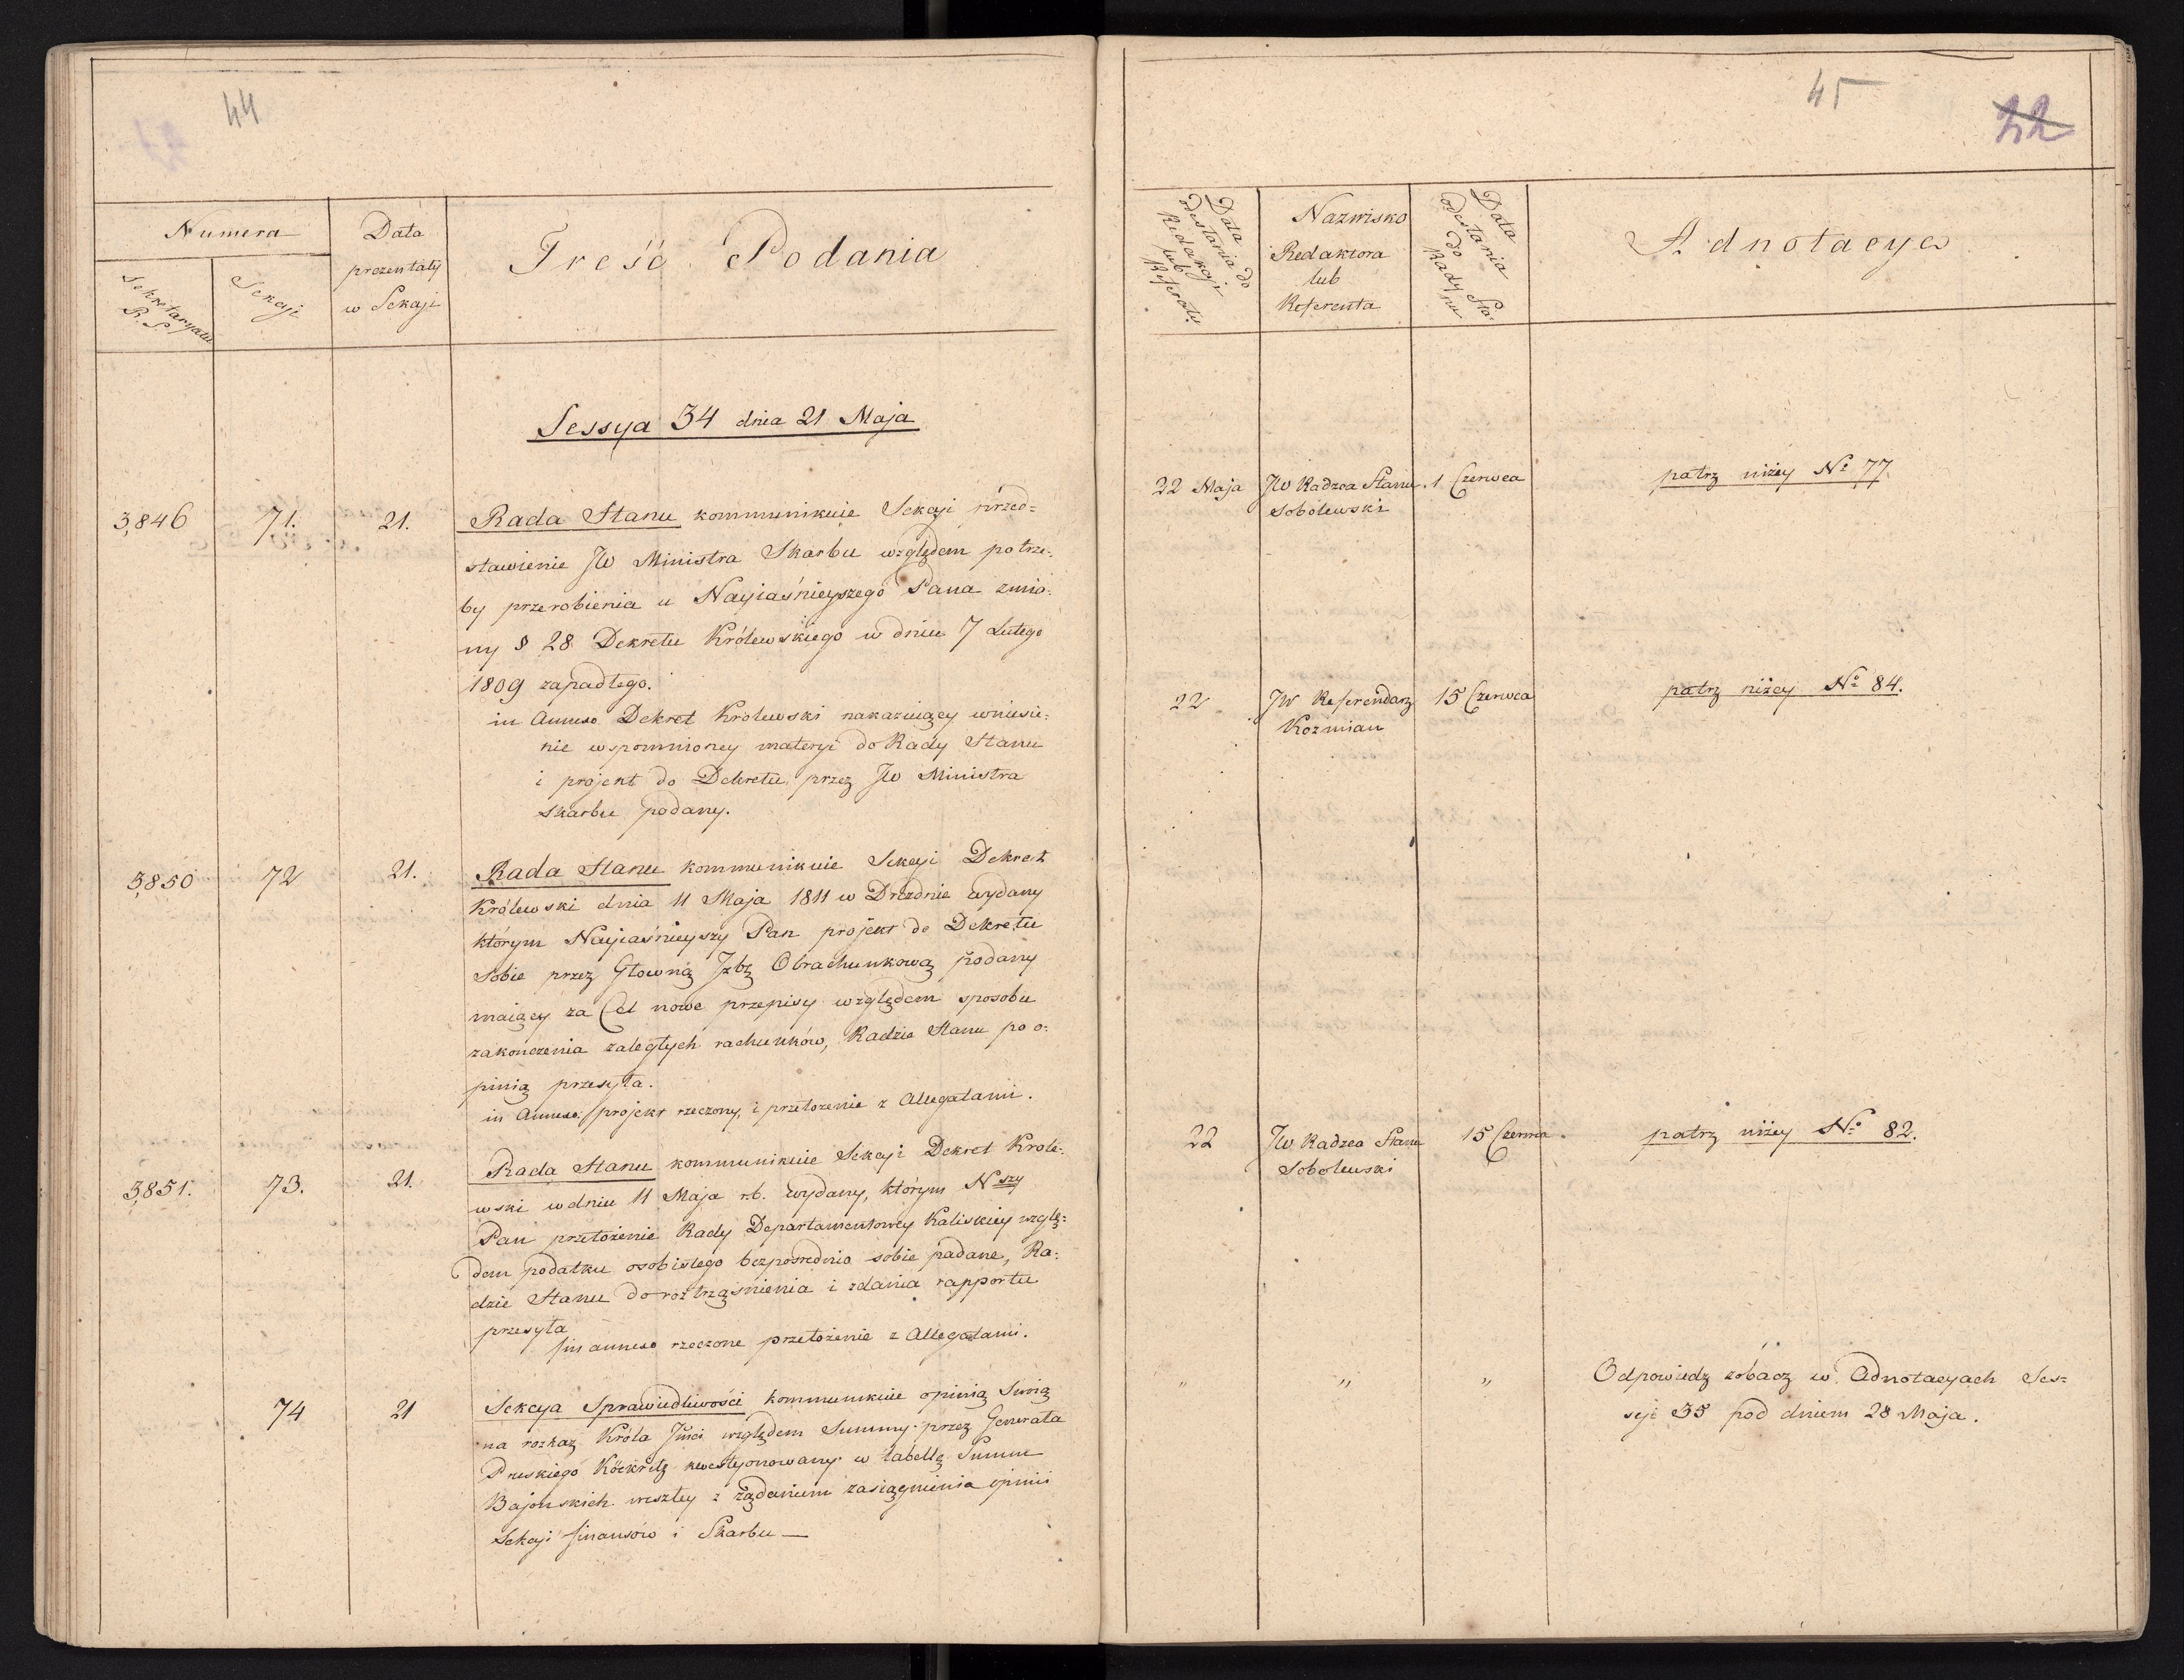 44
Numera
Sekretaryatu
R. S.
Sekcyi
Data
prezentaty
w Sekcyi
Treść Podania
Sessya 34 dnia 21 Maja
3,846 71. 21. Rada Stanu kommunikuie Sekcyi przed=
stawienie JW Ministra Skarbu względem potrze:
by przerobienia u Nayiaśnieyszego Pana zmia:
ny § 28 Dekretu Królewskiego w dniu 7 Lutego
1809 zapadłego.
in Annexo Dekret Krolewski nakazuiący wniesie:
nie wspomnioney materyi do Rady Stanu
i projekt do Dekretu przez JW Ministra
Skarbu podany.
3,850 72 21. Rada Stanu kommunikuie Sekcyi Dekret
Królewski dnia 11 Maja 1811 w Dreznie wydany
którym Nayiaśnieyszy Pan projekt do Dekretu
Sobie przez Głowną Izbę Obrachunkową podany
maiący za Cel nowe przepisy względem sposobu
zakonczenia zaległych rachunków, Radzie Stanu po o:
pinią przesyła.
in Annexo projekt rzeczony, i przełozenie z Allegatami.
3,851. 73. 21. Rada Stanu kommunikuie Sekcyi Dekret Krole:
wski w dniu 11 Maja r.b. wydany, którym Nszy
Pan przełożenie Rady Departamentowey Kaliskiey wzglę=
dem podatku osobistego bezpośrednio sobie padane, Ra:
dzie Stanu do roztrząsnienia i zdania rapportu
przesyła
in annexo rzeczone przełożenie z Allegatami.
74 21 Sekcya Sprawiedliwości kommunikuie opinią Swoią
na rozkaz Króla Jmci względem Summy przez Generała
Pruskiego Köckritz kwestyonowany w tabellę Summ
Bajonskich weszłey z żądaniem zasiągnienia opinii
Sekcyi finansów i Skarbu —
45
22
Data
odesłania do
Redakcyi
lub
Referatu
Nazwisko
Redaktora
lub
Referenta
Data
odesłania
do
Rady Sta:
nu
Adnotacya
22 Maja JW Radzca Stanu 1 Czerwca patrz niżey No 77.
Sobolewski
22 JW Referendarz 15 Czerwca patrz niżey No 84.
Kozmian
22 JW Radzca Stanu 15 Czerwca patrz niżey No 82.
Sobolewski
" " " Odpowiedz zobacz w Adnotacyach Ses=
syi 35 pod dniem 28 Maja.